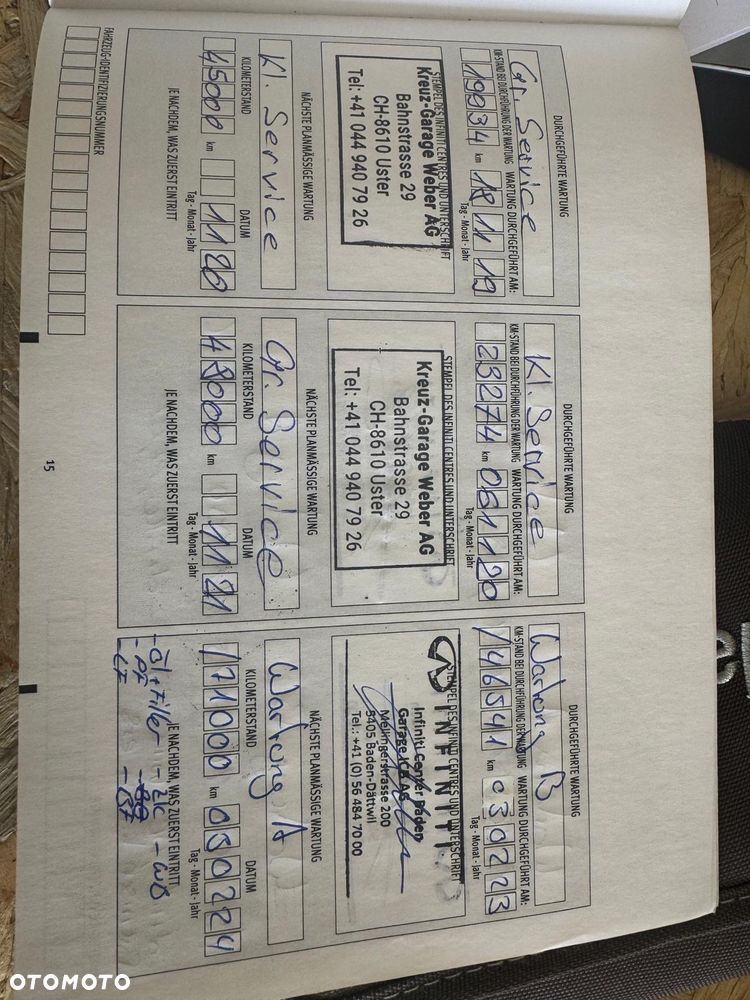 DURCHGEFÜHRTE WARTUNG
Gr. Service
KM-STAND BEI DURCHFÜHRUNG DER WARTUNG WARTUNG DURCHGEFÜHRT AM:
19934 km 18 11 19
Tag - Monat - Jahr
STEMPEL DES INFINITI CENTRES UND UNTERSCHRIFT
Kreuz-Garage Weber AG
Bahnstrasse 29
CH-8610 Uster
Tel: +41 044 940 79 26
NÄCHSTE PLANMÄSSIGE WARTUNG
Kl. Service
KILOMETERSTAND DATUM
45000 km 11 20
Tag - Monat - Jahr
JE NACHDEM, WAS ZUERST EINTRITT
DURCHGEFÜHRTE WARTUNG
Kl. Service
KM-STAND BEI DURCHFÜHRUNG DER WARTUNG WARTUNG DURCHGEFÜHRT AM:
23274 km 05 11 20
Tag - Monat - Jahr
STEMPEL DES INFINITI CENTRES UND UNTERSCHRIFT
Kreuz-Garage Weber AG
Bahnstrasse 29
CH-8610 Uster
Tel: +41 044 940 79 26
NÄCHSTE PLANMÄSSIGE WARTUNG
Gr. Service
KILOMETERSTAND DATUM
48000 km 11 21
Tag - Monat - Jahr
JE NACHDEM, WAS ZUERST EINTRITT
DURCHGEFÜHRTE WARTUNG
Wartung B
KM-STAND BEI DURCHFÜHRUNG DER WARTUNG WARTUNG DURCHGEFÜHRT AM:
/46541 km 03 02 23
Tag - Monat - Jahr
STEMPEL DES INFINITI CENTRES UND UNTERSCHRIFT
INFINITI
Infiniti Center Baden
Garage
Mellingerstrasse 200
5405 Baden-Dättwil
Tel.: +41 (0) 56 484 70 00
NÄCHSTE PLANMÄSSIGE WARTUNG
Wartung A
KILOMETERSTAND DATUM
/71000 km 03 02 24
Tag - Monat - Jahr
JE NACHDEM, WAS ZUERST EINTRITT
- Öl + Filter - ZK - WB
- PF
- LF - BF
FAHRZEUG-IDENTIFIZIERUNGSNUMMER
15
OTOMOTO